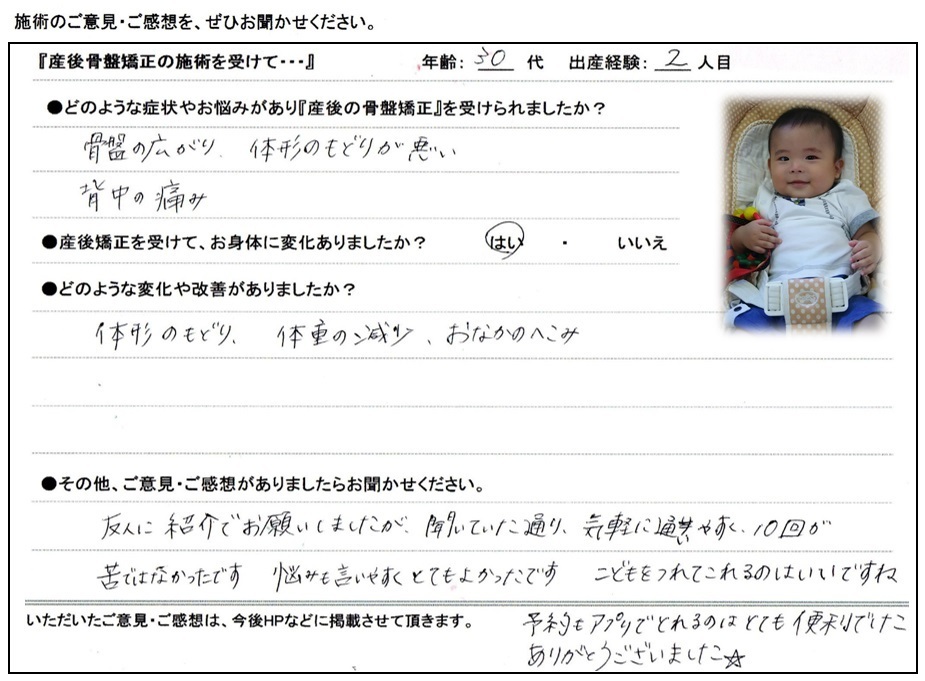 施術のご意見・ご感想を、ぜひお聞かせください。
『産後骨盤矯正の施術を受けて・・・』 年齢： 30 代 出産経験： 2 人目
●どのような症状やお悩みがあり『産後の骨盤矯正』を受けられましたか？
骨盤の広がり、体形のもどりが悪い
背中の痛み
●産後矯正を受けて、お身体に変化ありましたか？ はい ・ いいえ
●どのような変化や改善がありましたか？
体形のもどり、体重の減少、おなかのへこみ
●その他、ご意見・ご感想がありましたらお聞かせください。
友人に紹介でお願いしましたが、聞いていた通り、気軽に通いやすく、10回が
苦ではなかったです 悩みも言いやすくとてもよかったです こどもをつれてこれるのはいいですね
いただいたご意見・ご感想は、今後HPなどに掲載させて頂きます。
予約もアプリでとれるのはとても便利でした
ありがとうございました☆